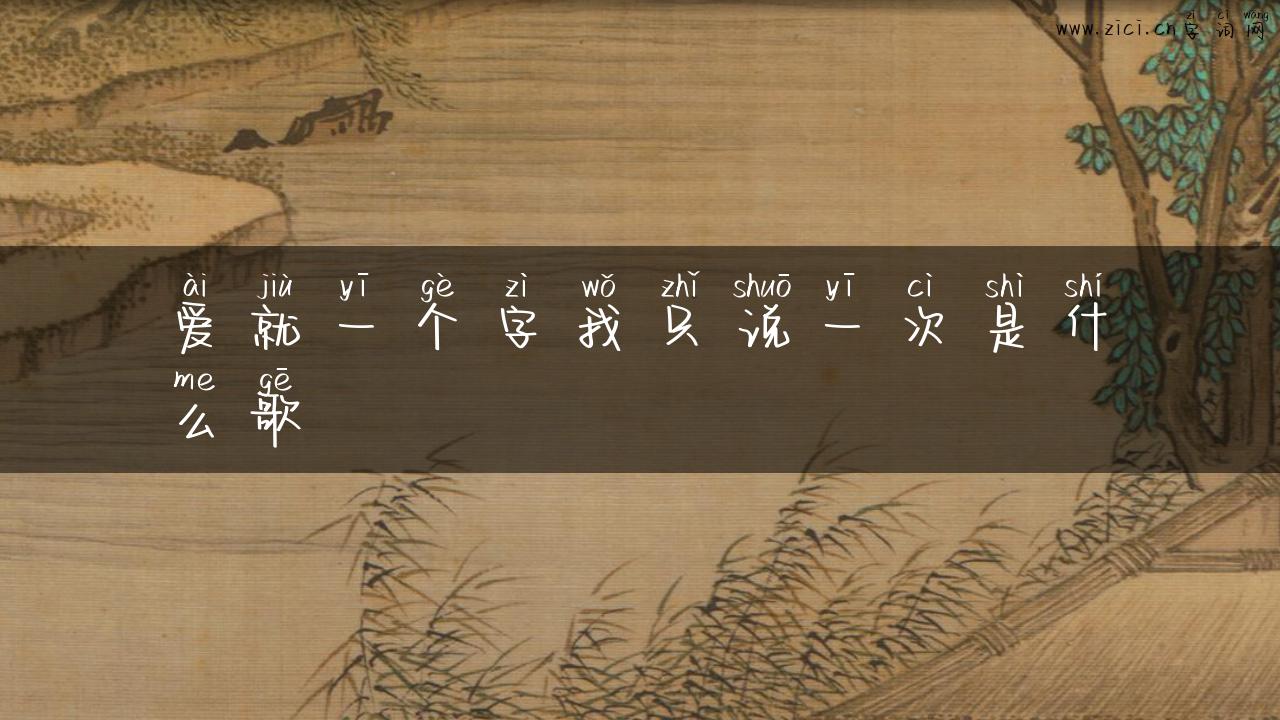 zì cí wǎng
www.zici.cn字词网
ài jiù yī gè zì wǒ zhǐ shuō yī cì shì shí
爱就一个字我只说一次是什
me gē
么歌